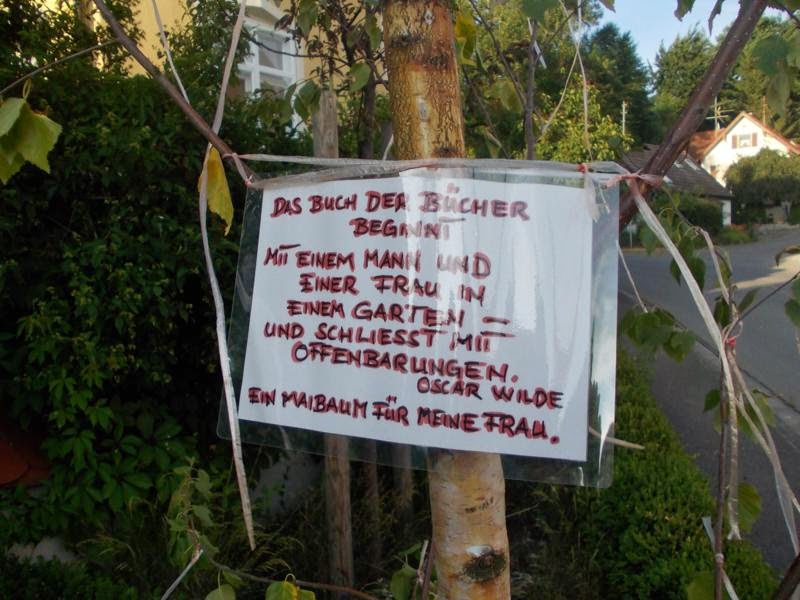 DAS BUCH DER BÜCHER
BEGINNT
MIT EINEM MANN UND
EINER FRAU IN
EINEM GARTEN –
UND SCHLIESST MIT
OFFENBARUNGEN.
OSCAR WILDE
EIN MAIBAUM FÜR MEINE FRAU.